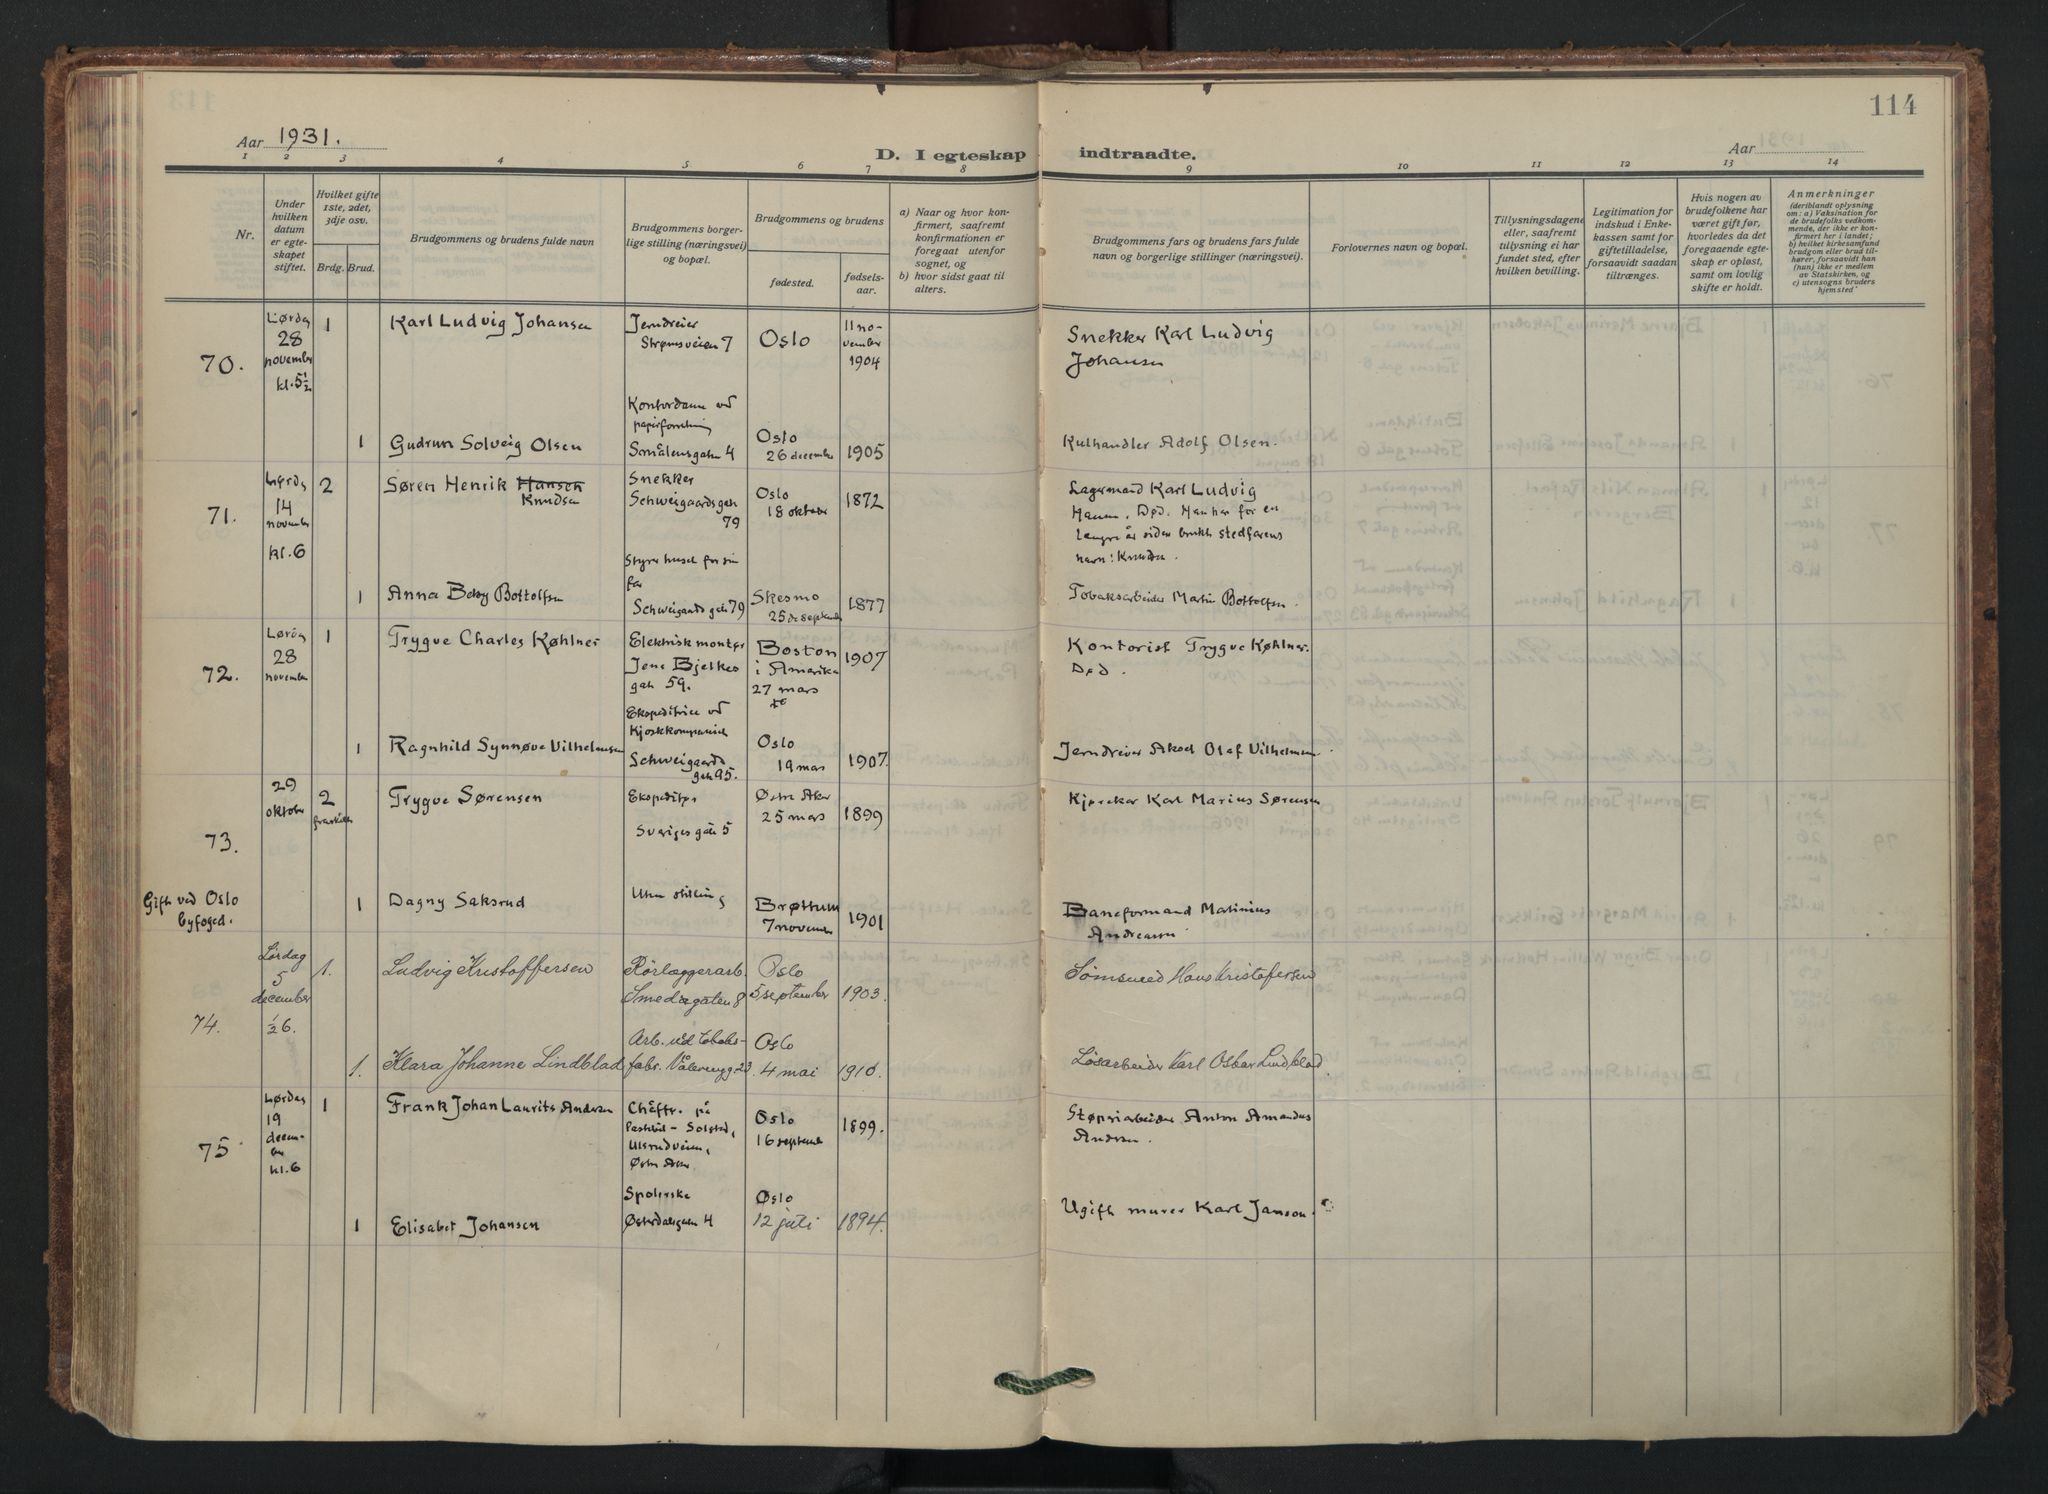 114
Aar 1931.
D. I egteskap indtraadte.
Aar
1 2 3 4 5 6 7 8 9 10 11 12 13 14
Nr.
Under hvilken datum er egteskapet stiftet.
Hvilket gifte 1ste, 2det, 3dje osv.
Brdg. Brud.
Brudgommens og brudens fulde navn
Brudgommens borgerlige stilling (næringsvei) og bopæl.
Brudgommens og brudens
fødested.
fødselsaar.
a) Naar og hvor konfirmert, saafremt konfirmationen er foregaat utenfor sognet, og
b) hvor sidst gaat til alters.
Brudgommens fars og brudens fars fulde navn og borgerlige stillinger (næringsvei).
Forlovernes navn og bopæl.
Tillysningsdagene eller, saafremt tillysning ei har fundet sted, efter hvilken bevilling.
Legitimation for indskud i Enkekassen samt for giftetilladelse, forsaavidt saadan tiltrænges.
Hvis nogen av brudefolkene har været gift før, hvorledes da det foregaaende egteskap er opløst, samt om lovlig skifte er holdt.
Anmerkninger
(deriblandt oplysning om: a) Vaksination for de brudefolks vedkommende, der ikke er konfirmert her i landet; b) hvilket kirkesamfund brudgom eller brud tilhører, forsaavidt han (hun) ikke er medlem av Statskirken, og c) utensogns bruders hjemsted
70.
Lørdag
28
november
kl. 5½
1
Karl Ludvig Johansen
Jerndreier
Strømsveien 7
Oslo
11 november
1904
Snekker Karl Ludvig
Johansen
1
Gudrun Solveig Olsen
Kontordame ved
papirforretning
Smålensgaten 4
Oslo
26 december
1905
Kulhandler Adolf Olsen.
71.
Lørdag
14
november
kl. 6
2
Søren Henrik Hansen
Knudsen
Snekker
Schweigaardsgaten
79
Oslo
18 oktober
1872
Lagermand Karl Ludvig
Hansen. Død. Han har for en
længre år siden brukt stedfarens
navn: Knudsen.
1
Anna Betsy Bottolfsen
Styrer huset for sin
far
Schweigaards gate 79
Skesmo
25de september
1877
Tobaksarbeider Martin Bottolfsen.
72.
Lørdag
28
november
1
Trygve Charles Køhlner
Elektrisk montør
Jens Bjelkes
gate 59.
Boston
i Amerika
27 mars
1907
Kontorist Trygve Køhlner.
Død.
1
Ragnhild Synnøve Vilhelmsen
Ekspeditrice ved
Kjoskkompaniet
Schweigaards
gate 95.
Oslo
19 mars
1907.
Jerndreier Aksel Olaf Vilhelmsen
73.
29
oktober
2
fraskilt
Trygve Sørensen
Ekspeditør
Sverigesgate 5
Østre Aker
25 mars
1899
Kjøreker Karl Marius Sørensen
Gift ved Oslo
byfoged.
1
Dagny Saksrud
Uten stilling
Brøttum
7 november
1901
Baneformand Matinius
Andreassen
74.
Lørdag
5
december
½6.
1.
Ludvig Kristoffersen
Rørlæggerarb.
Smedagaten 8
Oslo
5 september
1903.
Sømsmed Hans Kristofersen
1.
Klara Johanne Lindblad
Arb. ved tobaks-
fabr. Vålerengg. 23
Oslo
4 mai
1910.
Løsarbeider Karl Oskar Lindblad
75
Lørdag
19
decem-
ber
kl. 6
1
Frank Johan Laurits Andersen
Chåffr. på
Pastbil - Solstad,
Ulsrudveien,
Østre Aker
Oslo
16 september
1899.
Støperiarbeider Anton Amandus
Andersen.
1
Elisabet Johansen
Spolerske
Østerdalsgaten 4
Oslo
12 juli
1894.
Ugift murer Karl Janson.